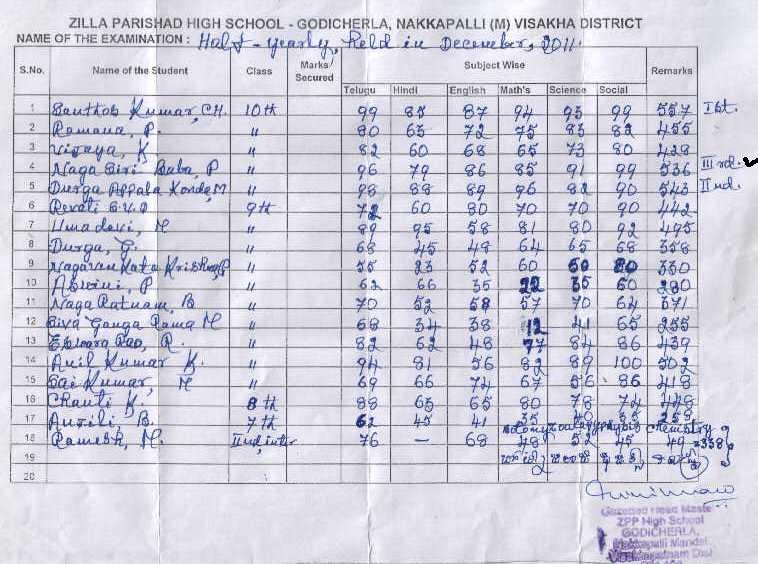 ZILLA PARISHAD HIGH SCHOOL - GODICHERLA, NAKKAPALLI (M) VISAKHA DISTRICT
NAME OF THE EXAMINATION : Half - yearly, Held in December, 2011.
S.No. Name of the Student Class Marks Secured Subject Wise Remarks
Telugu Hindi English Math's Science Social
1 Santhosh Kumar, CH. 10th 99 85 87 94 93 99 557 Ist.
2 Ramana, P. " 80 63 72 75 83 82 455
3 Vijaya, K " 82 60 68 65 73 80 428
4 Naga Siri Baba, P " 96 79 86 85 91 99 536 IIIrd.
5 Durga Appala Konda, M " 98 88 89 96 82 90 543 IInd.
6 Revati 9th 72 60 80 70 70 90 442
7 Umadevi, M " 89 95 58 81 80 92 495
8 Durga, G. " 68 45 48 64 65 68 358
9 " 55 23 52 60 60 80 330
10 Aswini, P " 62 66 35 22 35 60 280
11 Naga Ratnam, B " 70 52 58 57 70 64 371
12 Siva Ganga Rama M " 68 34 38 12 41 65 255
13 Eswara Rao, R. " 82 62 48 77 84 86 439
14 Anil Kumar K. " 94 81 56 82 89 100 502
15 Sai Kumar, M " 69 66 74 67 56 86 418
16 Chanti K. 8th 88 65 65 80 78 72 448
17 B. 7th 62 45 41 35 40 35 258
chemistry
18 Ramesh, M. IInd, inter 76 – 68 48 52 45 49 =338
19
20
Gazetted Head Maste
ZPP High School
GODICHERLA,
Nakkapalli Mandal
Visakhapatnam Dist